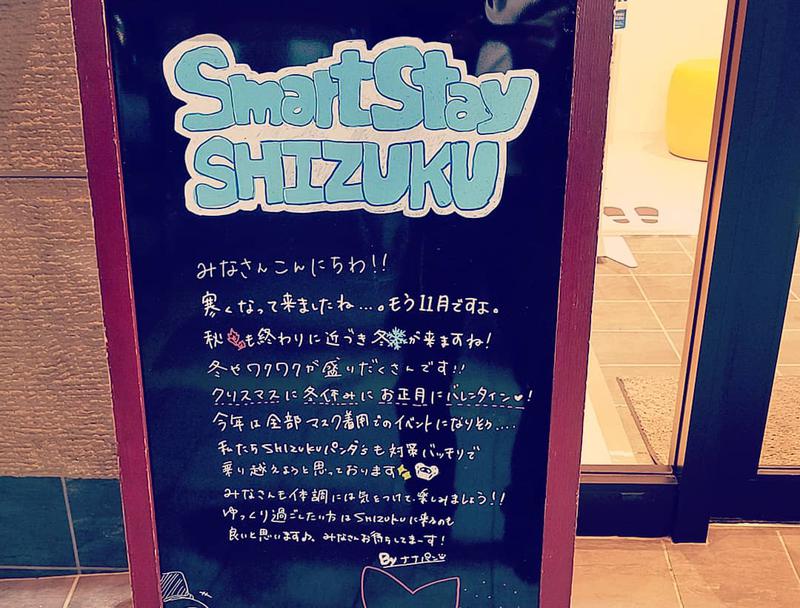 SmartStay
SHIZUKU
みなさんこんにちわ!!
寒くなって来ましたね…。もう11月ですよ。
秋も終わりに近づき冬が来ますね!
冬やワクワクが盛りだくさんです!!
クリスマスに冬休みにお正月にバレンタイン♥!
今年は全部マスク着用でのイベントになりそう....
私たちSHIZUKUパンダも対策バッチリで
乗り越えようと思っております
みなさんも体調には気をつけて、楽しみましょう!!
ゆっくり過ごしたい方はSHIZUKUに来るのも
良いと思いますよ。みなさんお待ちしてまーす!
By ナナパン